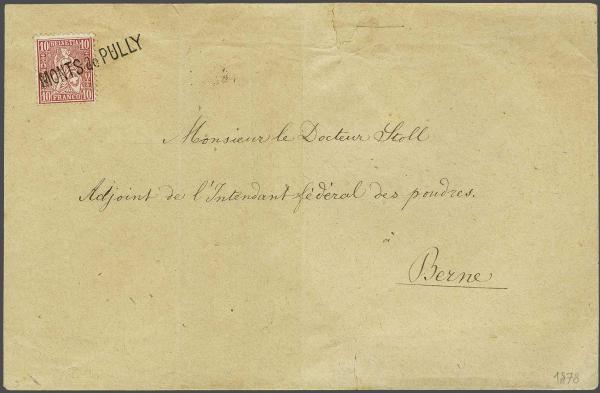 10 HELVETIA 10
MONTS de PULLY
10 FRANCO 10
Monsieur le Docteur Stoll
Adjoint de l'Intendant fédéral des poudres.
à
Berne
1878